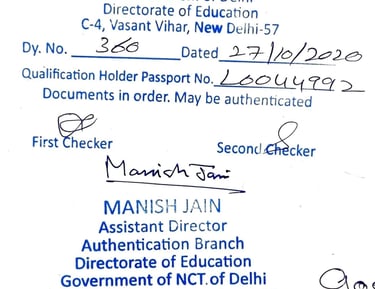 Directorate of Education
C-4, Vasant Vihar, New Delhi-57
Dy. No. 360 Dated 27/10/2020
Qualification Holder Passport No. L0044992
Documents in order. May be authenticated
First Checker Second Checker
Manish Jain
MANISH JAIN
Assistant Director
Authentication Branch
Directorate of Education
Government of NCT. of Delhi